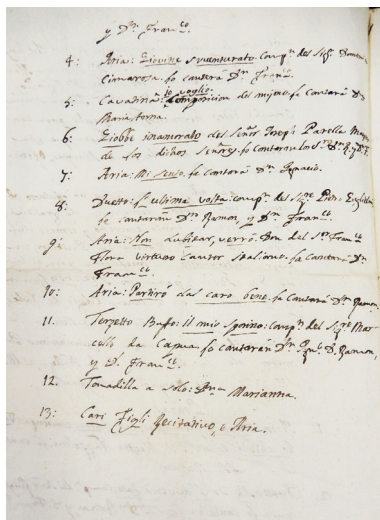 y Dn. Franco.
4: Aria: Giovine sventurato. compn. del Sigr. Domenico
Cimarosa. lo cantera Dn. Franco.
5: Cavatina: io voglio. Composicion del mismo. la cantará Da.
Maria
6: Giobbe inamorato del Señor Josep Parella Maestro
de los dichos Señores. lo cantaran los Srs. Dn. R. y Dn. F.
7: Aria: Mi sento. la cantará Dn. Ignacio.
8: Duetto: l'ultima volta: compn. del Sigre. Pietro Guglielmi
le cantarán Dn. Ramon, y Dn. Franco.
9: Aria: Non dubitar, verrò. Don del Sor. Franco.
Flora virtuoso cantor Italiano. la cantará Dn.
Franco.
10: Aria: Partirò dal caro bene. la cantará Dn. Ramon.
11. Terzetto Buffo: il mio sposino: compn. del Sigre. Mar
cello da Capua. lo cantarán Dn. Igno. Dn. Ramon,
y D. Franco.
12. Tonadilla a solo: Marianna.
13: Cari Figli Recitativo, e Aria.